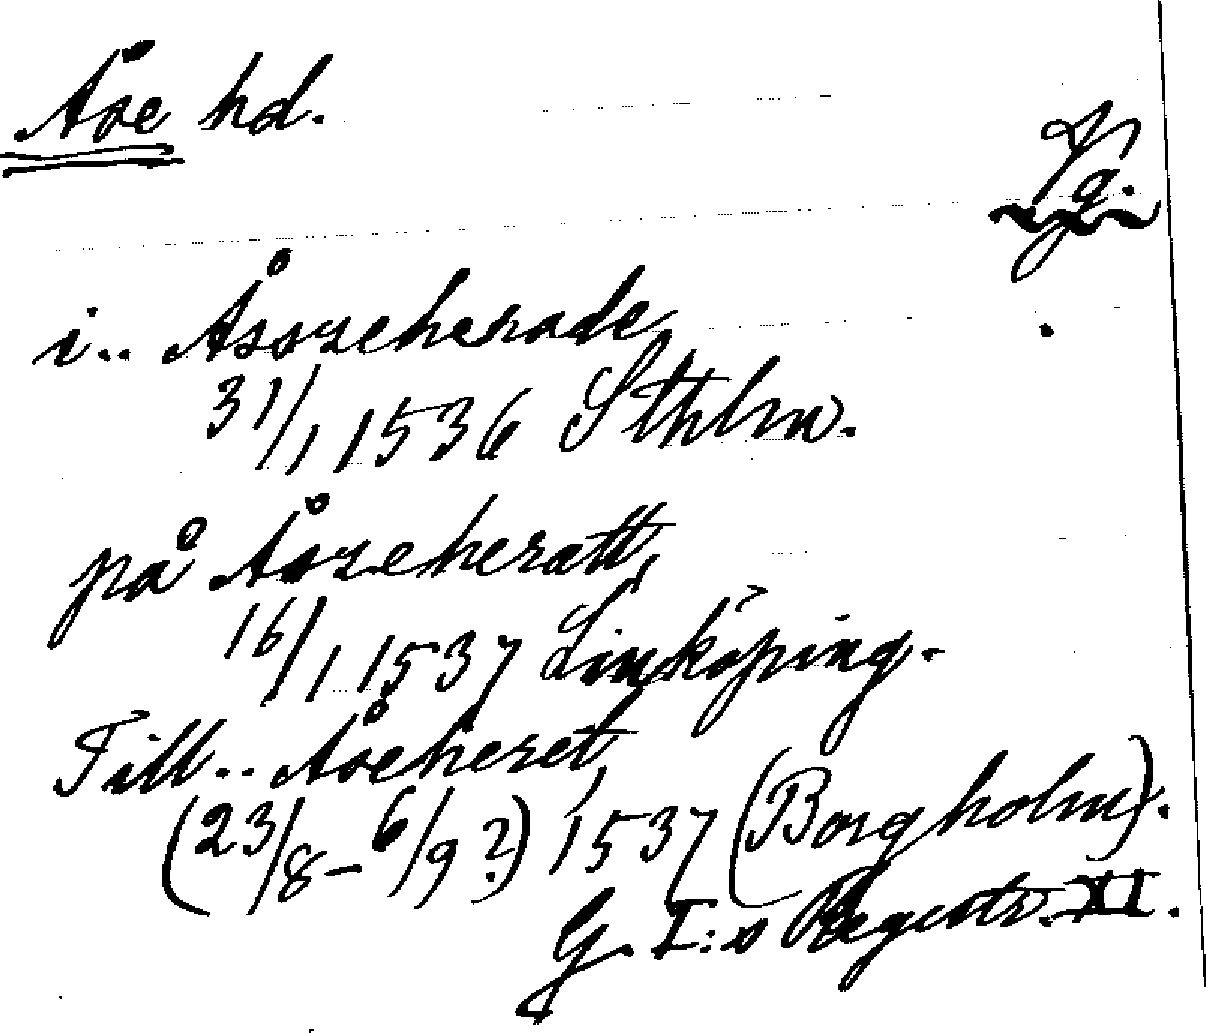 Åse hd.
Vg.
i.. Åsszeherade,
31/1 1536 Sthlm.
på Åszeheratt,
16/1 1537 Linköping.
Till.. Åseheret,
(23/8-6/9?) 1537 (Borgholm).
G. I:s Registr. XI.